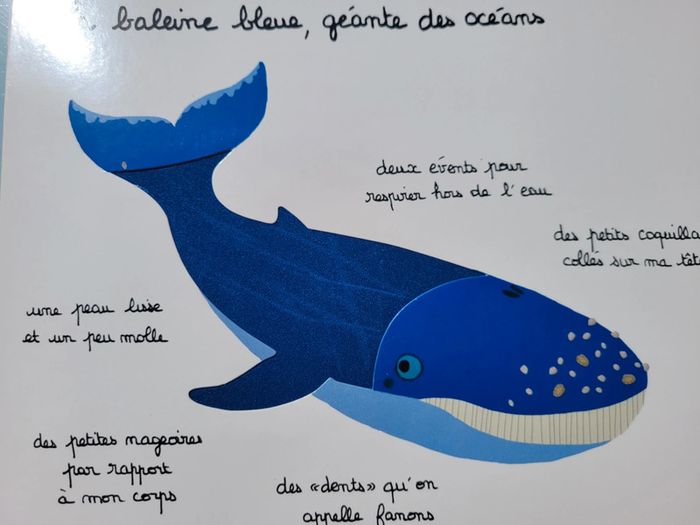 baleine bleue, géante des océans
deux évents pour
respirer hors de l'eau
des petits coquilla
collés sur ma têt
une peau lisse
et un peu molle
des petites nageoires
par rapport
à mon corps
des «dents» qu'on
appelle fanons